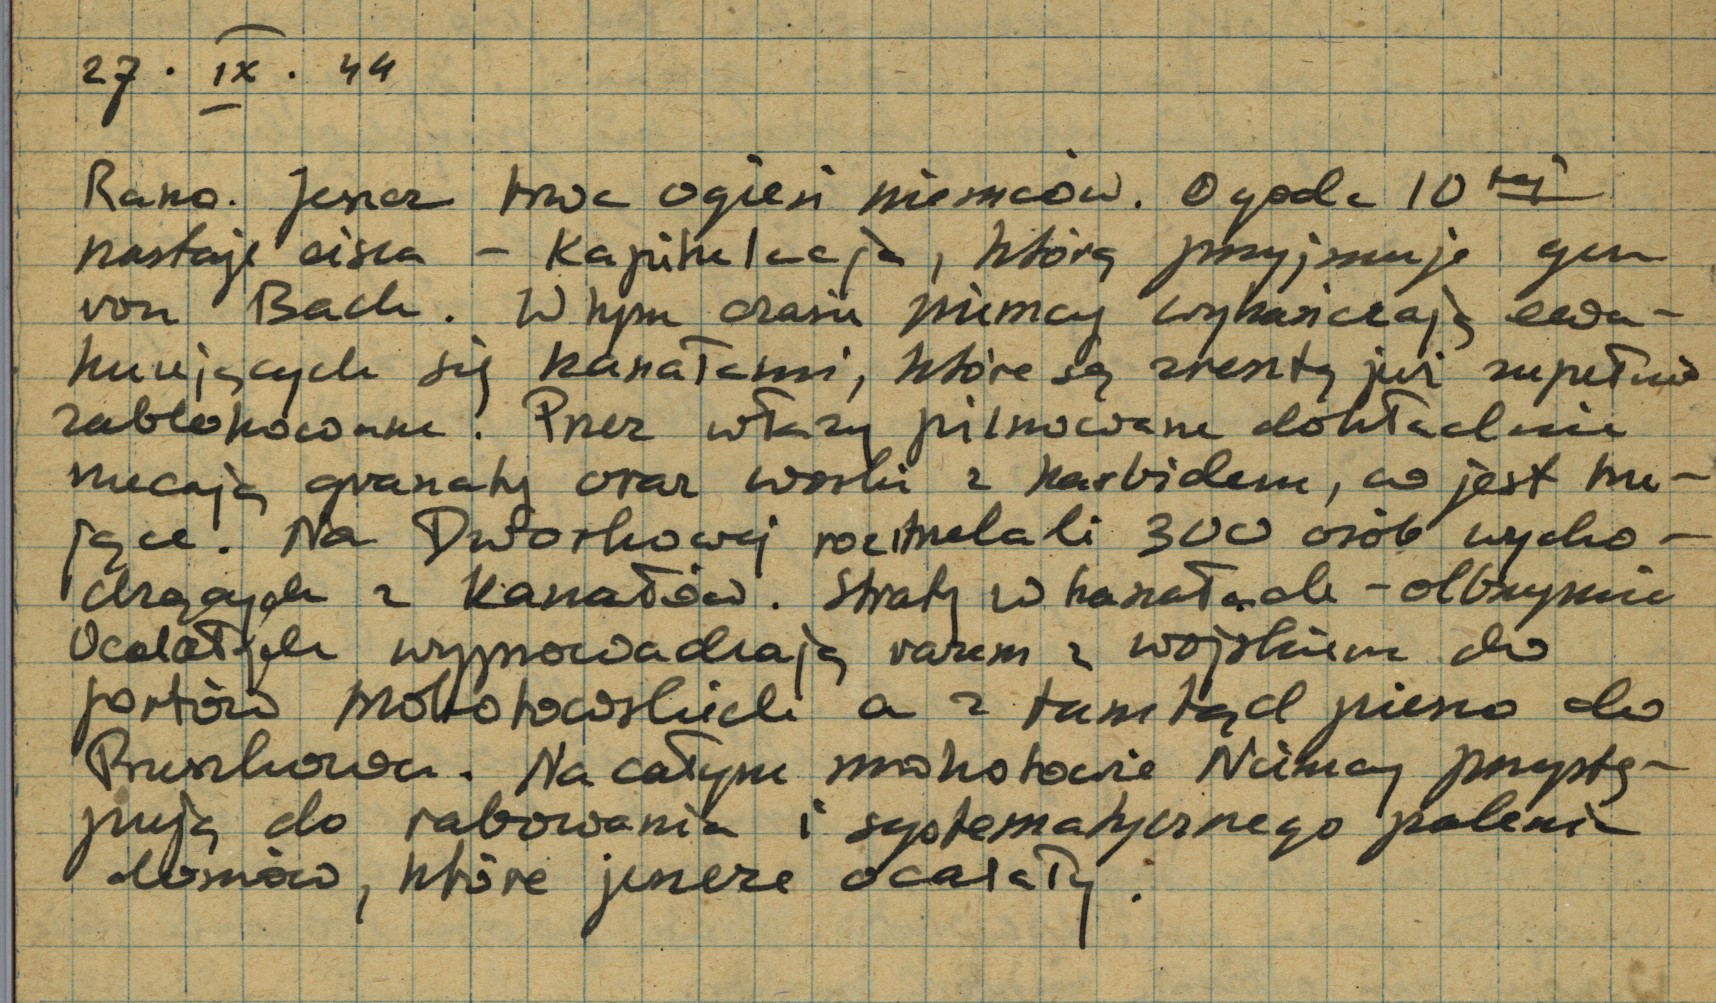 27 · IX · 44
Rano. Jeszcze trwa ogień niemców. O godz. 10 tej
nastaje cisza - Kapitulacja, którą przyjmuje gen
von Bach. W tym czasie niemcy wykańczają ewa-
kuujących się kanałami, które są zresztą już zupełnie
zablokowane. Przez włazy pilnowane dokładnie
rzucają granaty oraz worki z karbidem, co jest tru-
jące. Na Dworkowej rozstrzelali 300 osób wycho-
dzących z kanałów. Straty w kanałach - olbrzymie
Ocalałych wyprowadzają razem z wojskiem do
fortów mokotowskich a z tamtąd pieszo do
Pruszkowa. Na całym mokotowie Niemcy przystę-
pują do rabowania i systematycznego palenia
domów, które jeszcze ocalały.